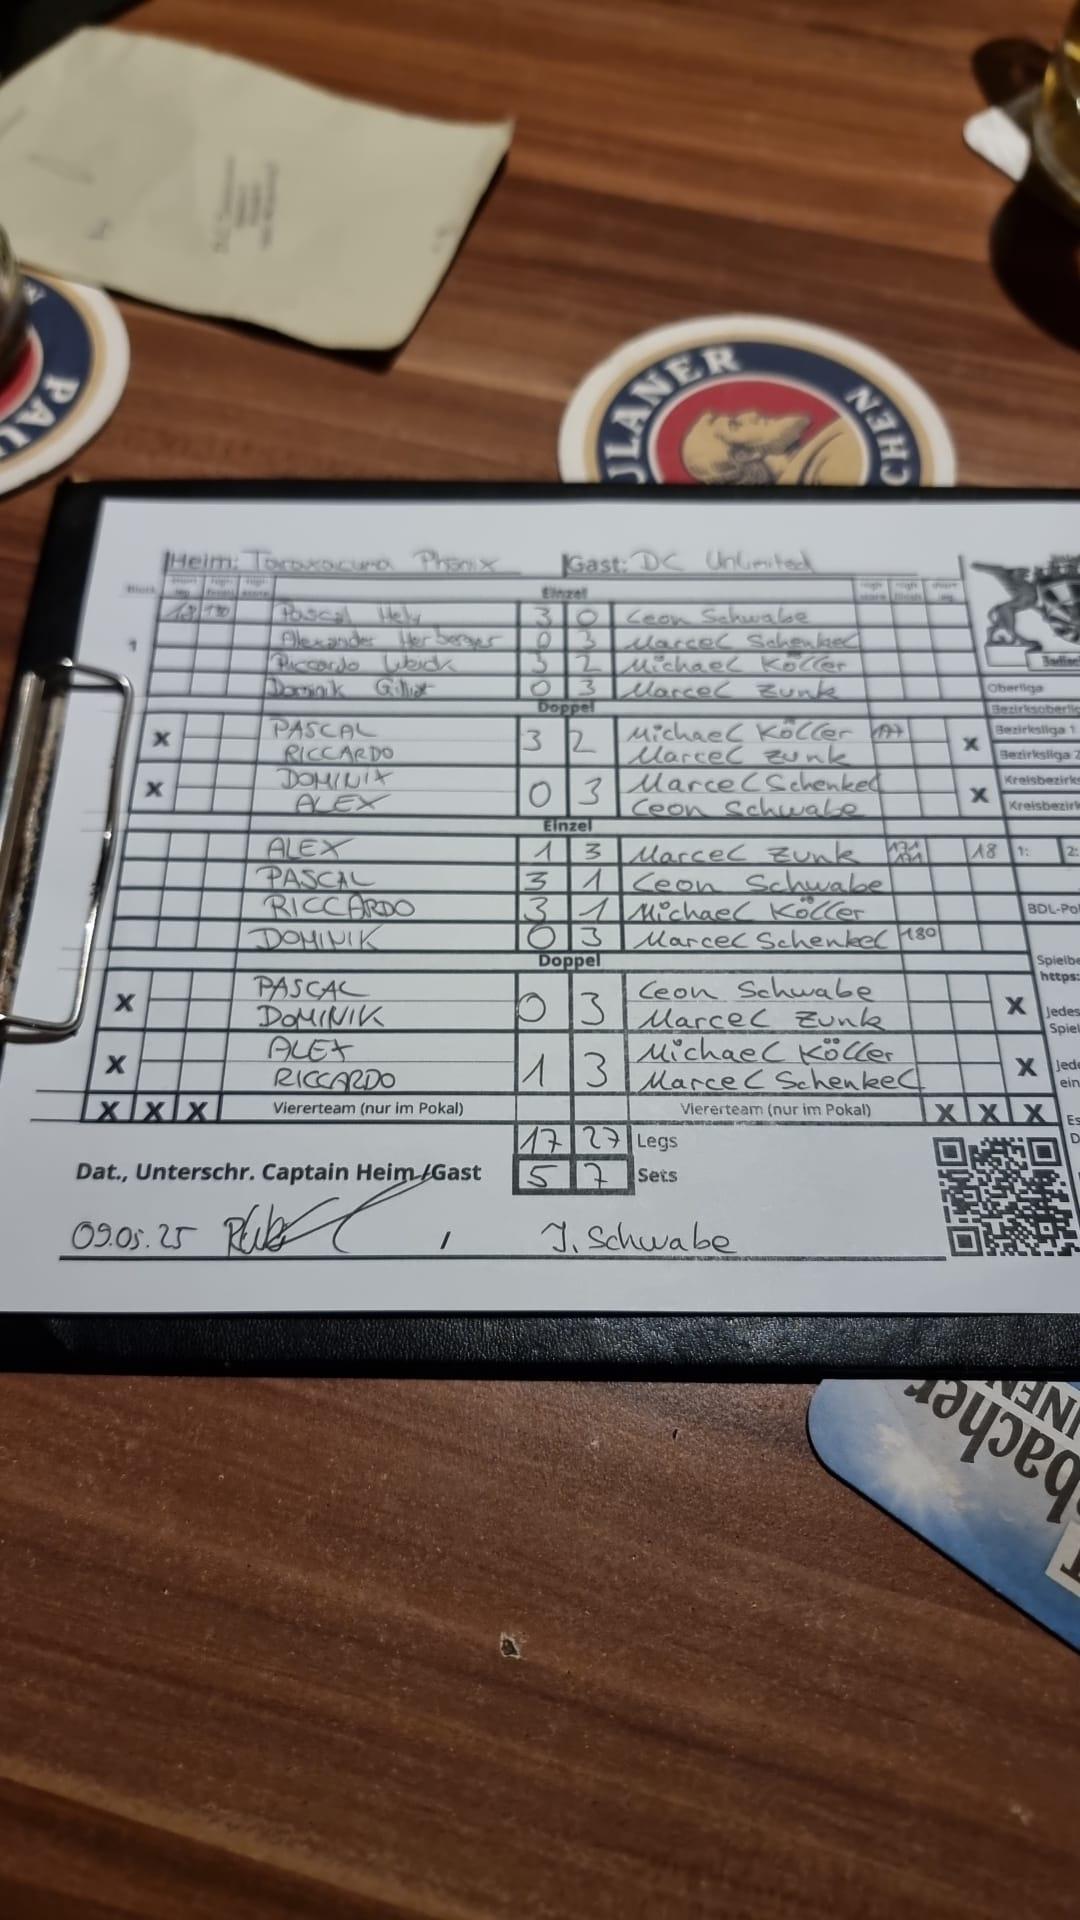 PAU
ULANER
CHEN
Heim: Taraxacum Phönix Gast: DC Unlimited
Einzel
18 180 Pascal Hely 3 0 Leon Schwabe
1 Alexander Herberger 0 3 Marcel Schenkel
Riccardo Weick 3 2 Michael Köller
Dominik 0 3 Marcel Zunk
Oberliga
Doppel
Bezirksoberlig
X PASCAL 3 2 Michael Köller 177 X
RICCARDO Marcel Zunk
Bezirksliga 1
Bezirksliga 2
X DOMINIK 0 3 Marcel Schenkel X
ALEX Leon Schwabe
Kreisbezirks
Kreisbezirk
Einzel
ALEX 1 3 Marcel Zunk 171 18 1: 2:
PASCAL 3 1 Leon Schwabe
RICCARDO 3 1 Michael Köller
BDL-Po
DOMINIK 0 3 Marcel Schenkel 180
Doppel
Spielbe
https:
X PASCAL 0 3 Leon Schwabe X
DOMINIK Marcel Zunk
Jedes
Spiel
X ALEX 1 3 Michael Köller X
RICCARDO Marcel Schenkel
Jede
ein
X X X Viererteam (nur im Pokal) Viererteam (nur im Pokal) X X X
Es
D
17 27 Legs
Dat., Unterschr. Captain Heim/Gast 5 7 Sets
09.05.25 / J. Schwabe
bacher